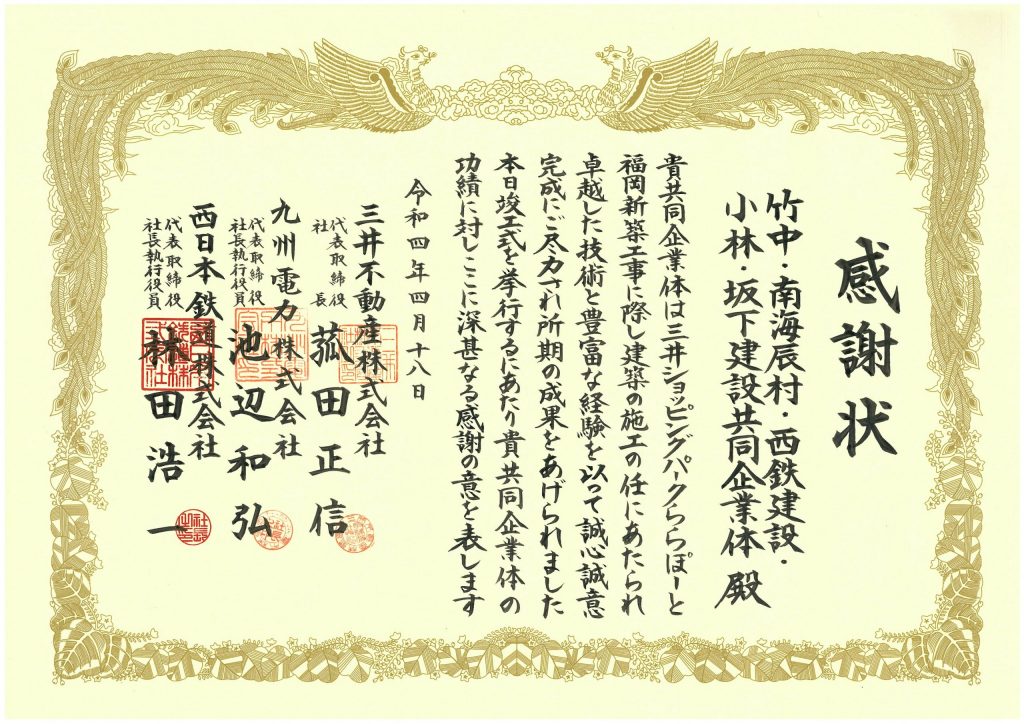 感謝状
竹中・南海辰村・西鉄建設・
小林・坂下建設共同企業体 殿
貴共同企業体は三井ショッピングパークららぽーと
福岡新築工事に際し建築の施工の任にあたられ
卓越した技術と豊富な経験を以って誠心誠意
完成にご尽力され所期の成果をあげられました
本日竣工式を挙行するにあたり貴共同企業体の
功績に対しここに深甚なる感謝の意を表します
令和四年四月十八日
三井不動産株式会社
代表取締役
社長
菰田正信
九州電力株式会社
代表取締役
社長執行役員
池辺和弘
西日本鉄道株式会社
代表取締役
社長執行役員
林田浩一